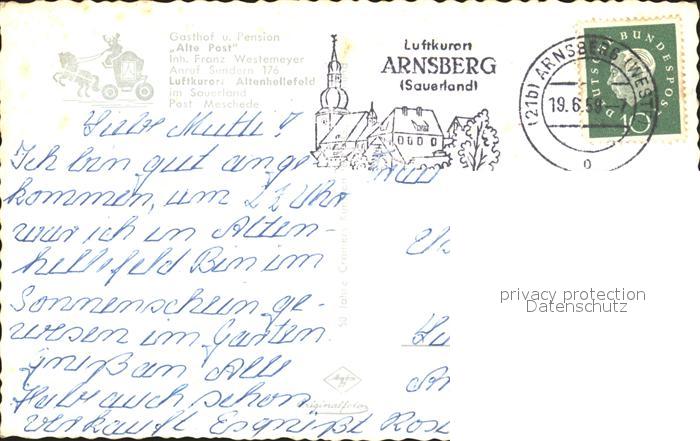 Gasthof u. Pension
„Alte Post"
Inh. Franz Westemeyer
Anruf Sundern 176
Luftkurort Altenhellefeld
im Sauerland
Post Meschede
Luftkurort
ARNSBERG
(Sauerland)
(21b) ARNSBERG (WESTF
19.6.59-7
DEUTSCHE BUNDESPOST
10
Liebe Mutti!
Ich bin gut ange
kommen, um Uhr
war ich in Alten-
hellefeld Bin im
Sonnenschein ge-
wesen im Garten
gruß an Alle
Habe auch schon
verkauft Es grüßt Rose
50 Jahre Cramers
Agfa
Originalfoto
privacy protection
Datenschutz